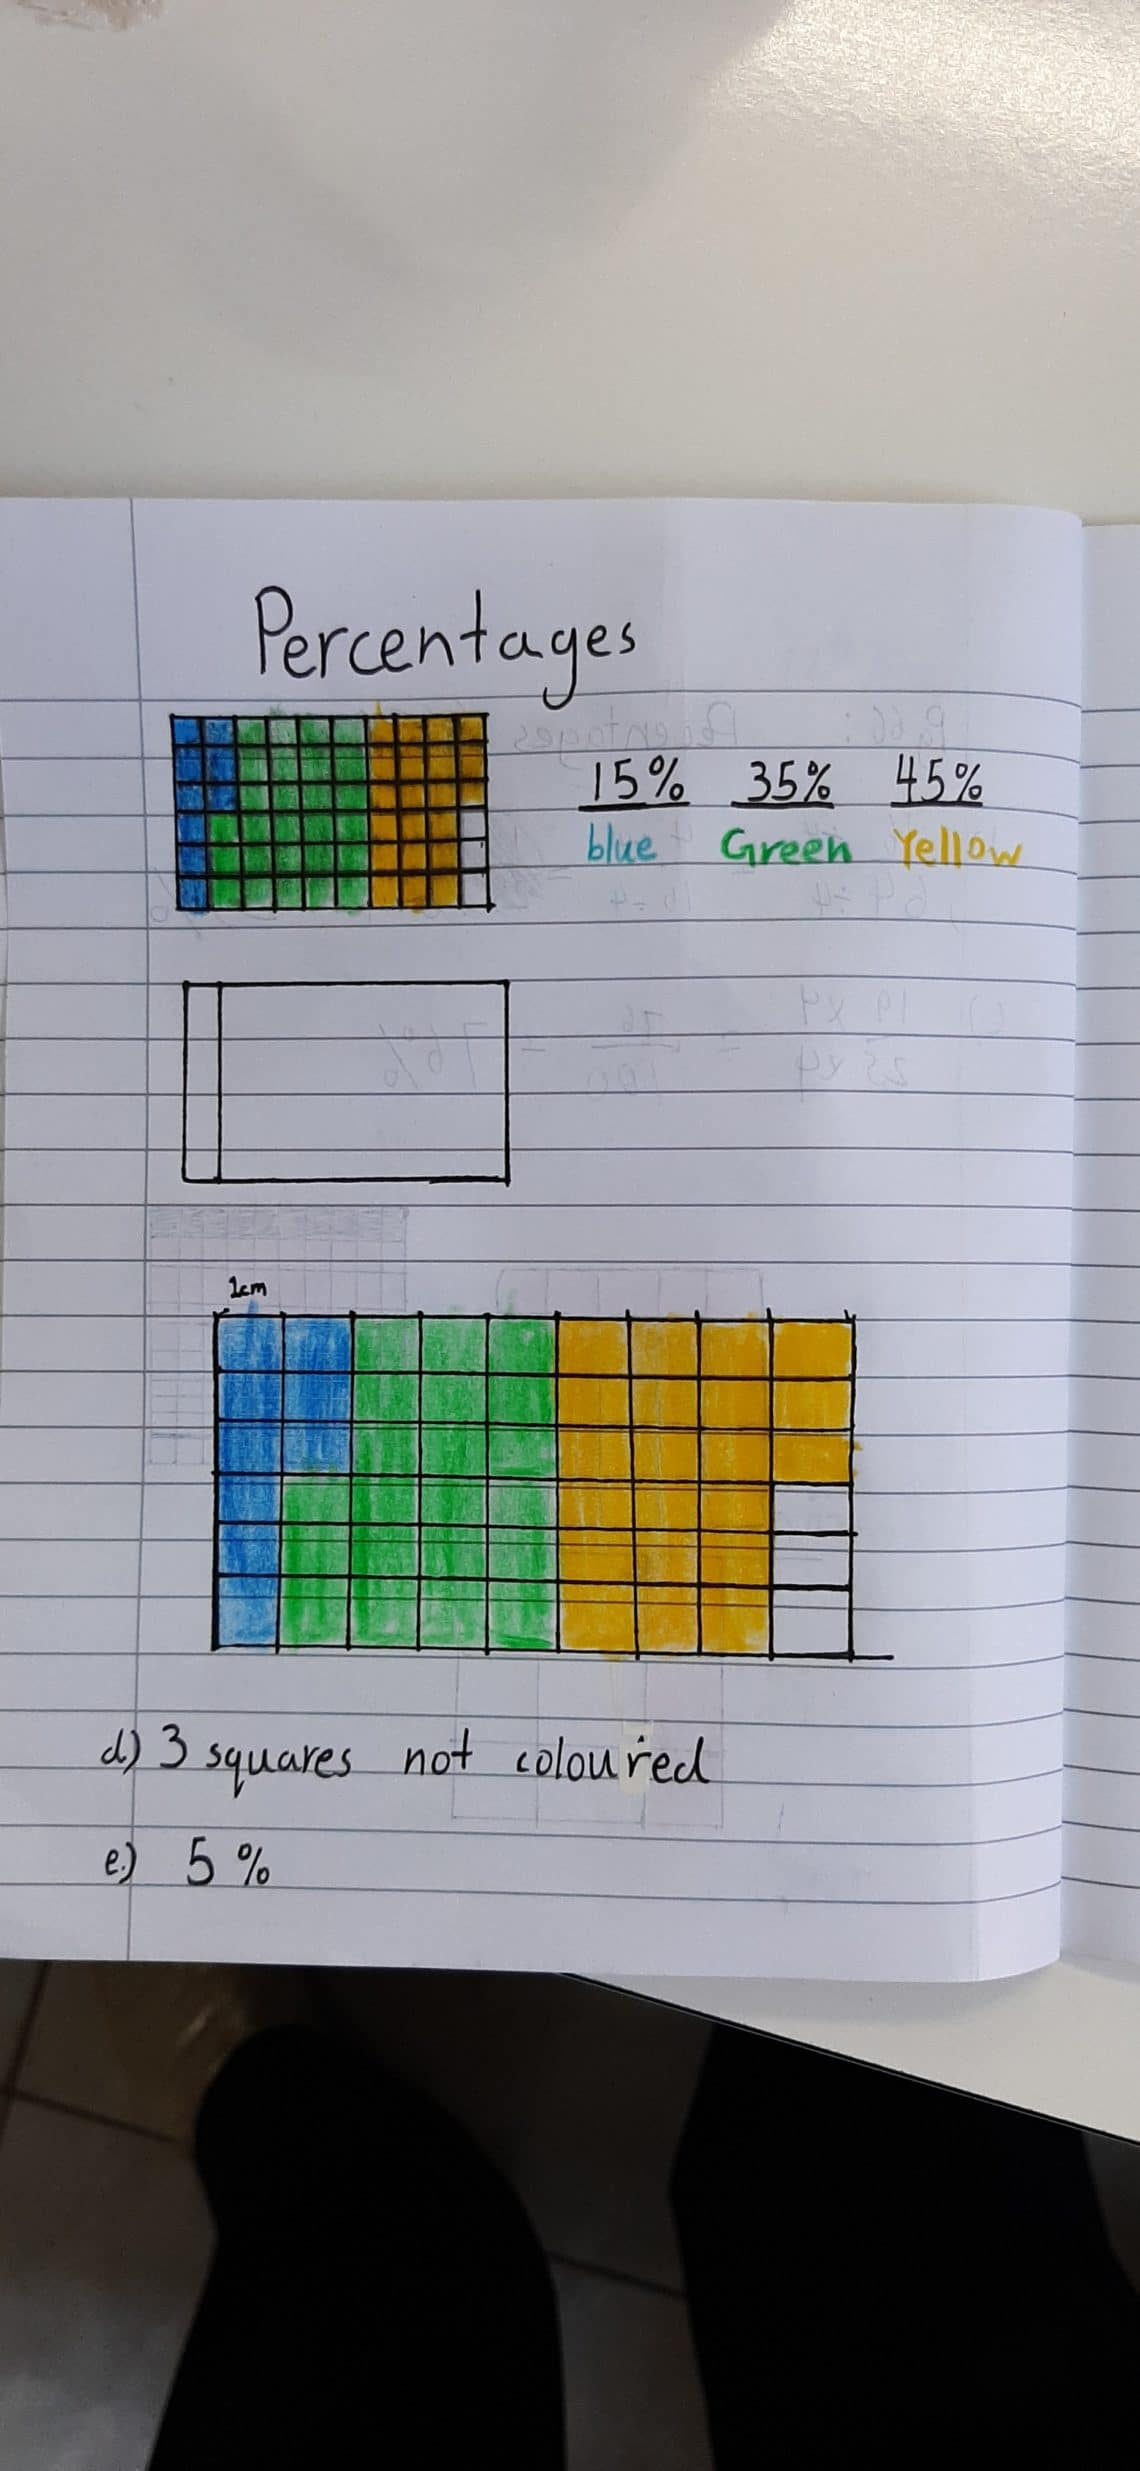 Percentages
15% 35% 45%
blue Green Yellow
1cm
d) 3 squares not coloured
e.) 5%